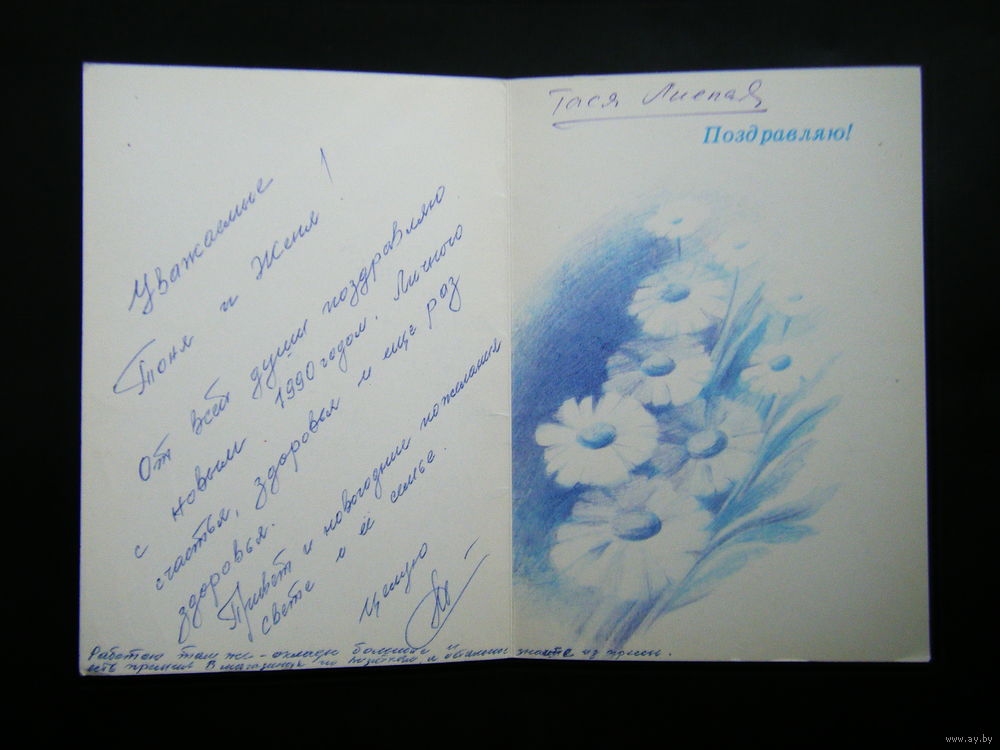 Уважаемые
Тоня и Женя !
От всей души поздравляю
с новым 1990 годом. Личного
счастья, здоровья и ещё раз
здоровья.
Привет и новогодние пожелания
свете и её семье.
Целую
Работаю там же - оклады большие и
есть премии В магазинах по и из
Тася
Поздравляю!
www.ay.by